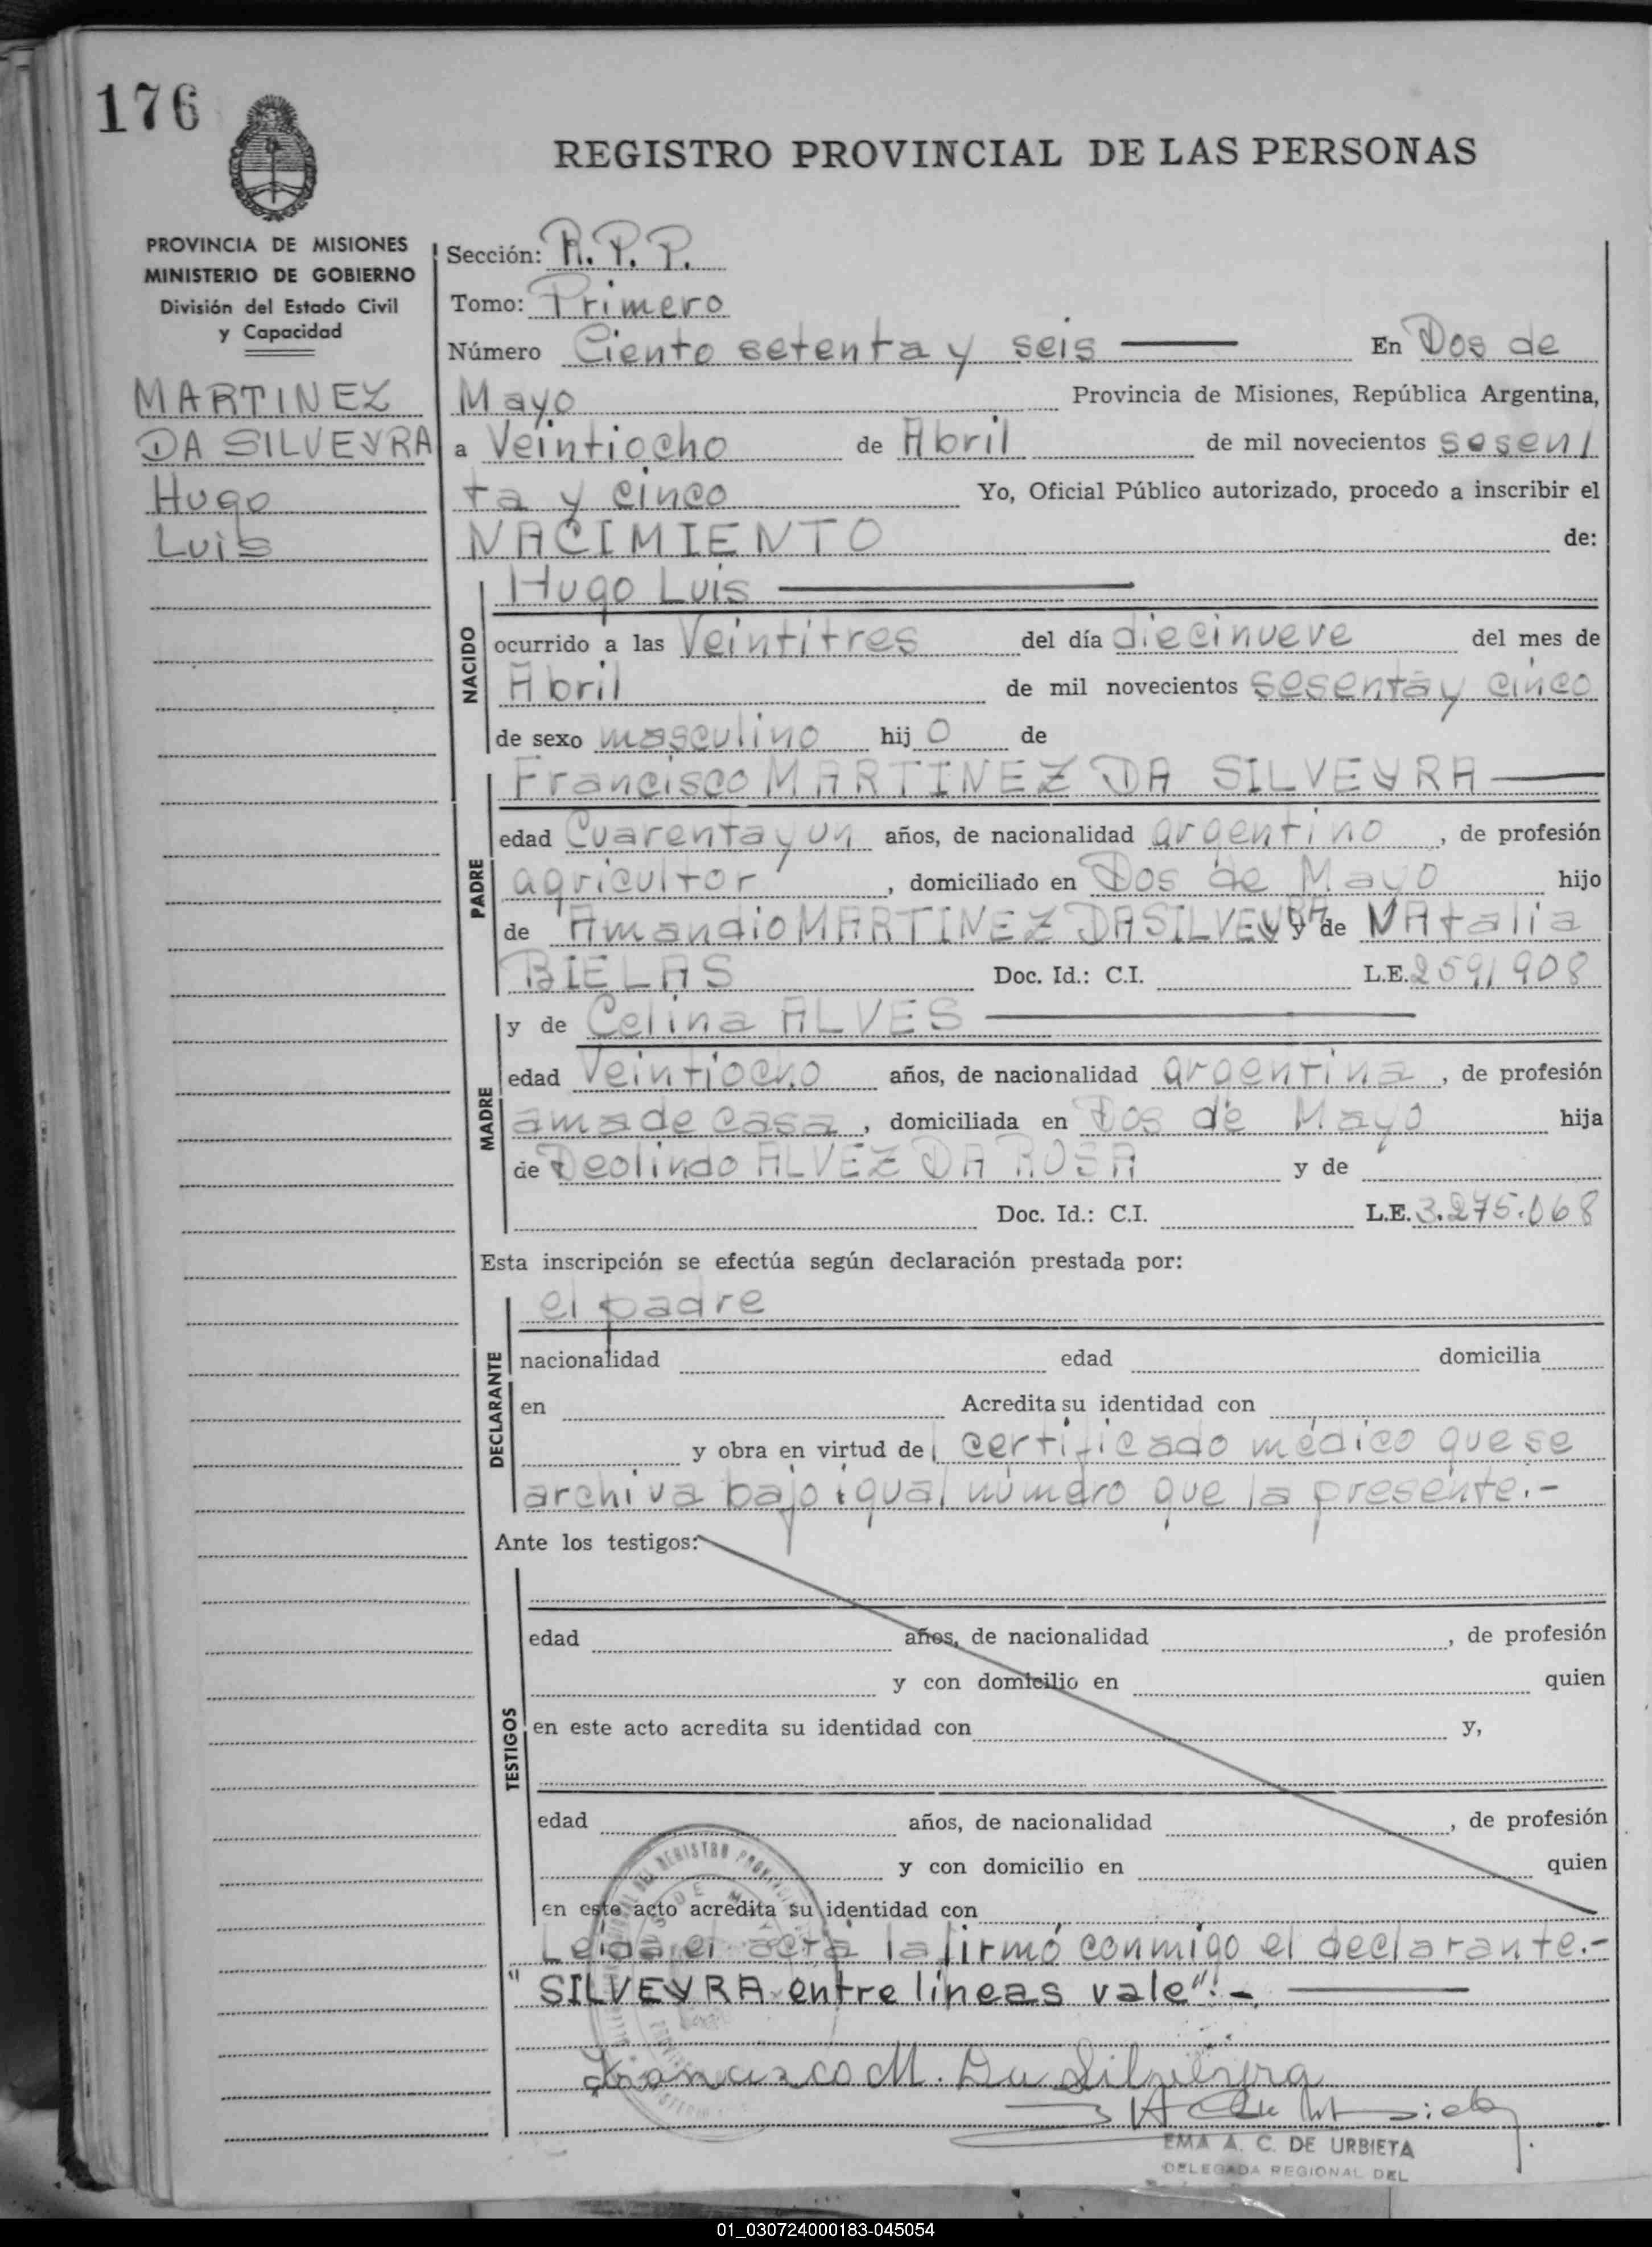 176
REGISTRO PROVINCIAL DE LAS PERSONAS
PROVINCIA DE MISIONES
MINISTERIO DE GOBIERNO
División del Estado Civil
y Capacidad
MARTINEZ
DA SILVEYRA
Hugo
Luis
Sección: R.P.P.
Tomo: Primero
Número Ciento setenta y seis — En Dos de
Mayo Provincia de Misiones, República Argentina,
a Veintiocho de Abril de mil novecientos sesen/
ta y cinco Yo, Oficial Público autorizado, procedo a inscribir el
NACIMIENTO de:
NACIDO
Hugo Luis —
ocurrido a las Veintitres del día diecinueve del mes de
Abril de mil novecientos sesenta y cinco
de sexo masculino hij o de
PADRE
Francisco MARTINEZ DA SILVEYRA —
edad Cuarenta y un años, de nacionalidad argentino, de profesión
agricultor, domiciliado en Dos de Mayo hijo
de Amandio MARTINEZ DA SILVEYRA y de NAtalia
BIELAS Doc. Id.: C.I. L.E. 2591908
MADRE
y de Celina ALVES —
edad Veintiocho años, de nacionalidad argentina, de profesión
ama de casa, domiciliada en Dos de Mayo hija
de Deolindo ALVEZ DA ROSA y de
Doc. Id.: C.I. L.E. 3.275.068
Esta inscripción se efectúa según declaración prestada por:
DECLARANTE
el padre
nacionalidad edad domicilia
en Acredita su identidad con
y obra en virtud de certificado médico que se
archiva bajo igual número que la presente.-
Ante los testigos:
TESTIGOS
edad años, de nacionalidad , de profesión
y con domicilio en quien
en este acto acredita su identidad con y,
edad años, de nacionalidad , de profesión
y con domicilio en quien
en este acto acredita su identidad con
Leida el acta la firmó conmigo el declarante.-
"SILVEYRA entre líneas vale".- —
Francisco M. Da Silveyra
EMA A. C. DE URBIETA
DELEGADA REGIONAL DEL
01_030724000183-045054